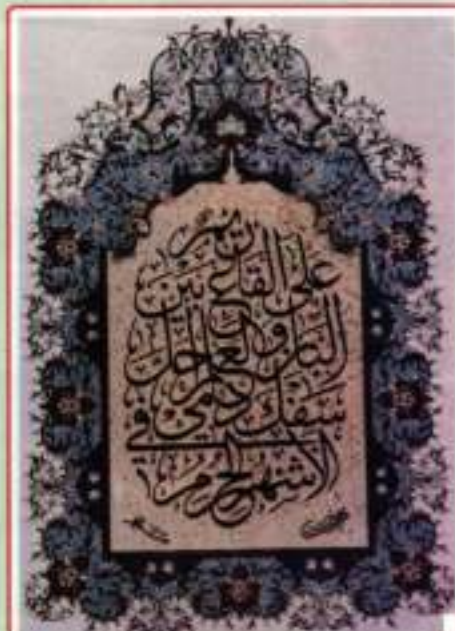 ريم
على القاع بين
البان والعلم أحل
سفك دمي في
الأشهر الحرم